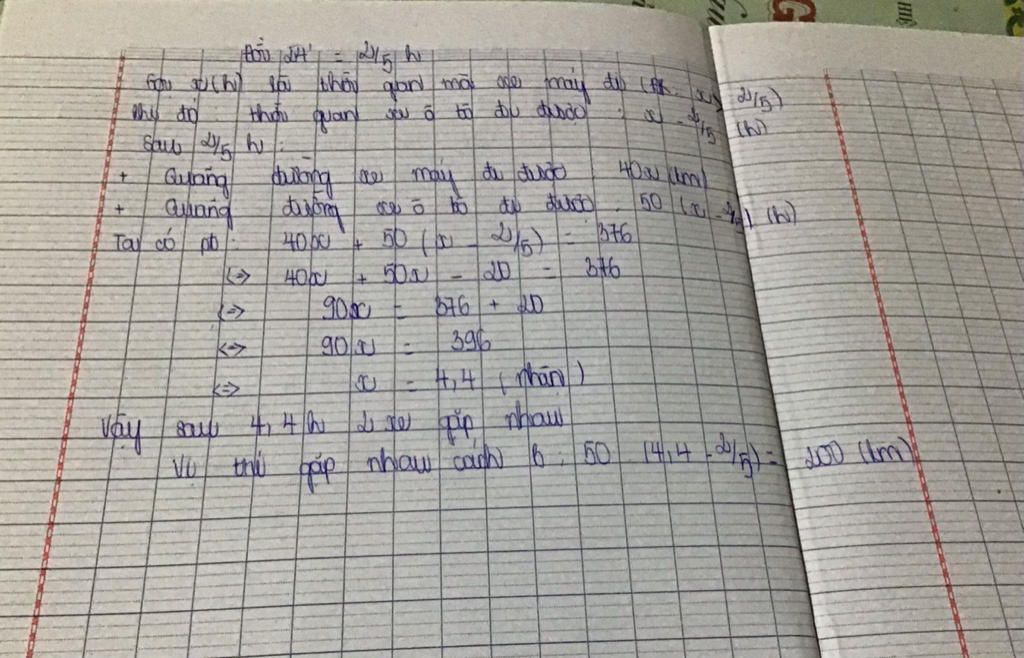 Đổi 24' = 2/5 h
Gọi x(h) là thời gian mà xe máy đi (đk: x > 2/5)
khi đó thời gian xe ô tô đi được : x - 2/5 (h)
Sau 2/5 h :
+ Quãng đường xe máy đi được 40x (km)
+ Quãng đường xe ô tô đi được 50 (x - 2/5) (h)
Ta có pt : 40x + 50 (x - 2/5) = 376
<=> 40x + 50x - 20 = 376
<=> 90x = 376 + 20
<=> 90x = 396
<=> x = 4,4 (nhận)
Vậy sau 4,4h 2 xe gặp nhau
Vị trí gặp nhau cách B : 50 (4,4 - 2/5) = 200 (km)